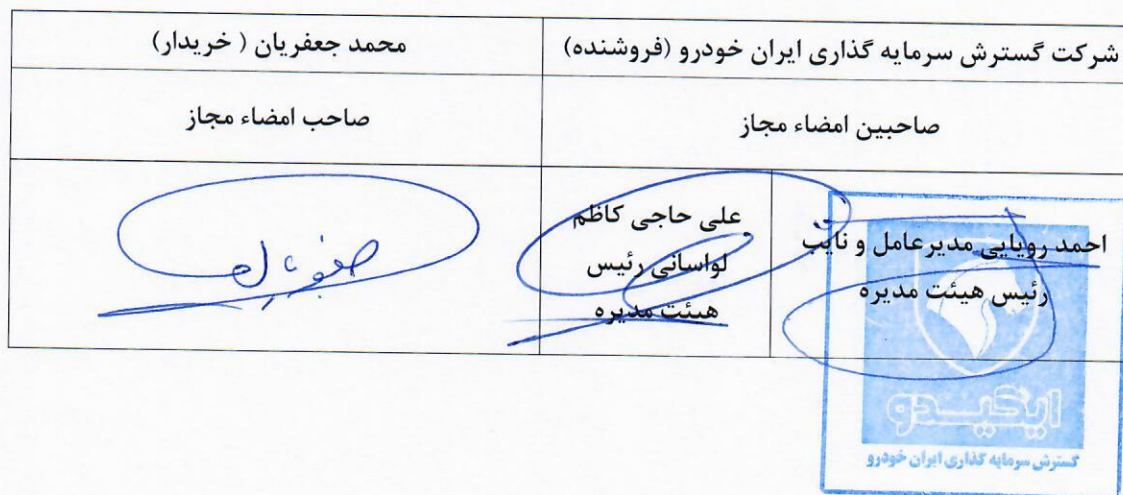 شرکت گسترش سرمایه گذاری ایران خودرو (فروشنده)
محمد جعفریان ( خریدار)
صاحبین امضاء مجاز
صاحب امضاء مجاز
احمد رویایی مدیرعامل و نایب
رئیس هیئت مدیره
علی حاجی کاظم
لواسانی رئیس
هیئت مدیره
ایکیدو
گسترش سرمایه گذاری ایران خودرو